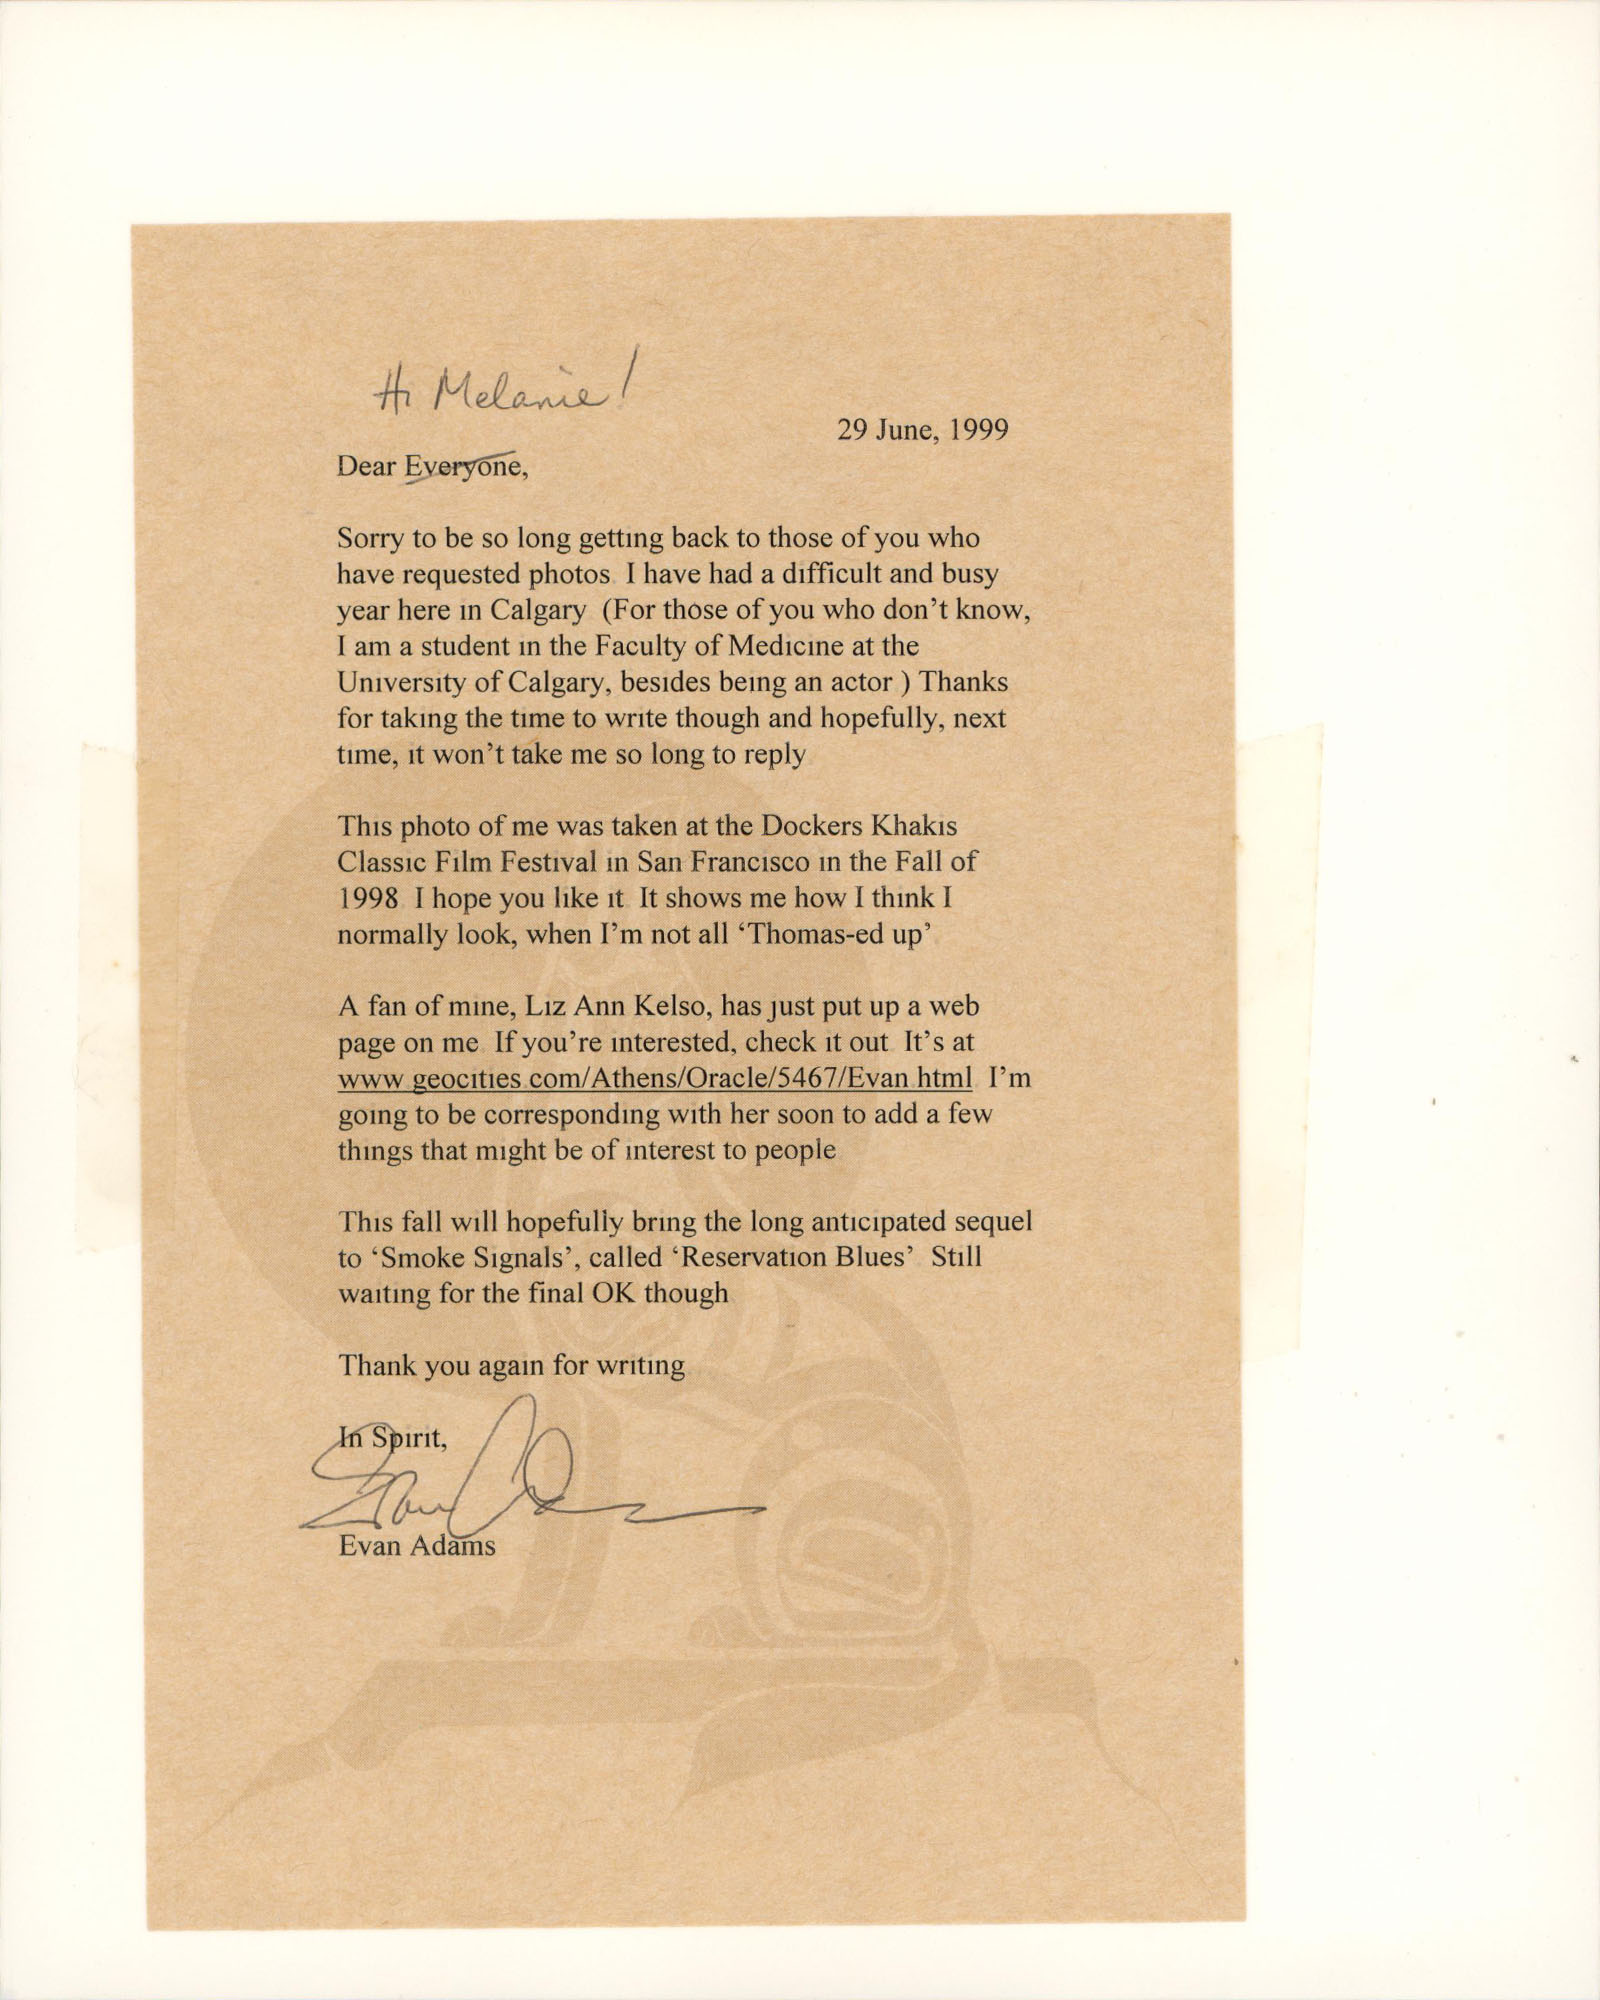 Hi Melanie!
29 June, 1999
Dear Everyone,
Sorry to be so long getting back to those of you who
have requested photos I have had a difficult and busy
year here in Calgary (For those of you who don't know,
I am a student in the Faculty of Medicine at the
University of Calgary, besides being an actor ) Thanks
for taking the time to write though and hopefully, next
time, it won't take me so long to reply
This photo of me was taken at the Dockers Khakis
Classic Film Festival in San Francisco in the Fall of
1998 I hope you like it It shows me how I think I
normally look, when I'm not all ‘Thomas-ed up’
A fan of mine, Liz Ann Kelso, has just put up a web
page on me If you're interested, check it out It's at
www geocities com/Athens/Oracle/5467/Evan html I'm
going to be corresponding with her soon to add a few
things that might be of interest to people
This fall will hopefully bring the long anticipated sequel
to ‘Smoke Signals’, called ‘Reservation Blues’ Still
waiting for the final OK though
Thank you again for writing
In Spirit,
Evan Adams